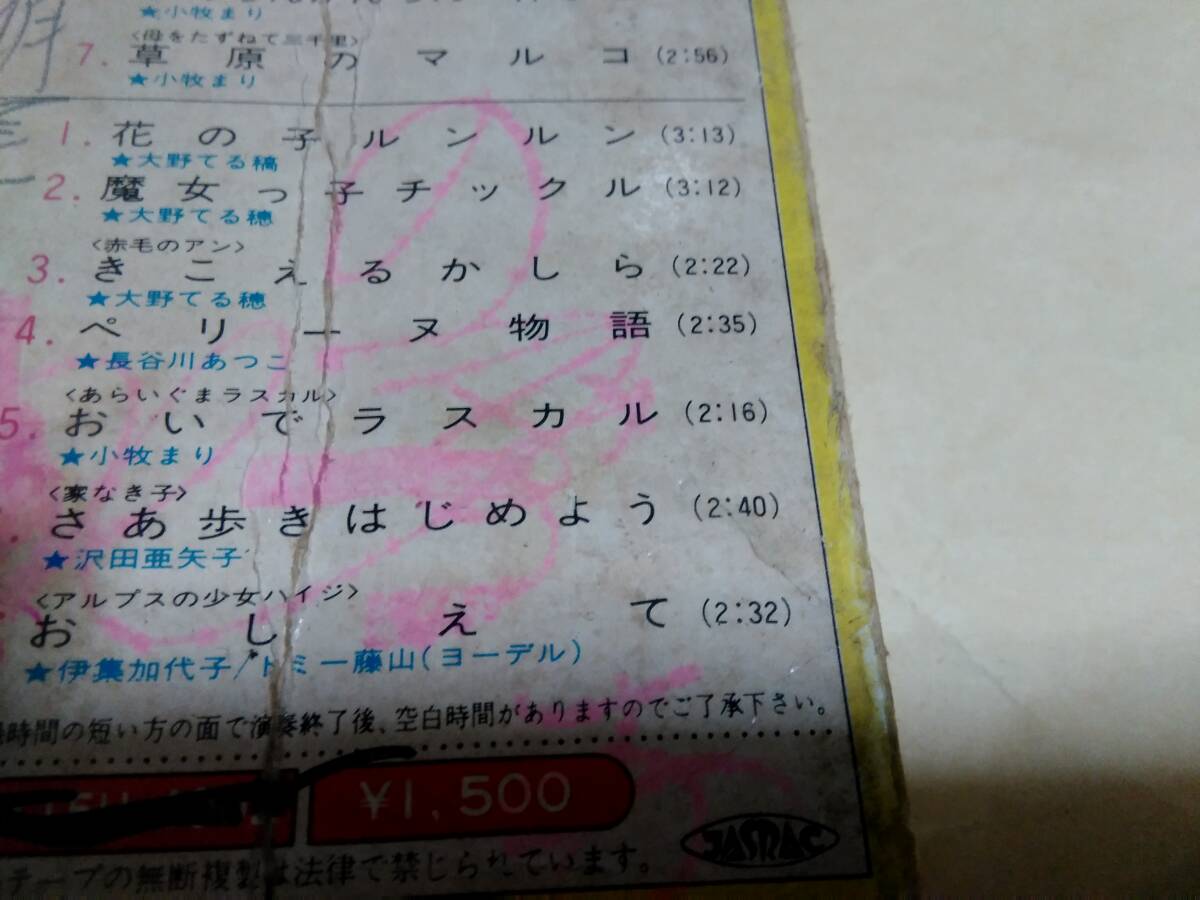 ★小牧まり
〈母をたずねて三千里〉
7. 草原のマルコ (2:56)
★小牧まり
1. 花の子ルンルン (3:13)
★大野てる穂
2. 魔女っ子チックル (3:12)
★大野てる穂
〈赤毛のアン〉
3. きこえるかしら (2:22)
★大野てる穂
4. ペリーヌ物語 (2:35)
★長谷川あつこ
〈あらいぐまラスカル〉
5. おいでラスカル (2:16)
★小牧まり
〈家なき子〉
さあ歩きはじめよう (2:40)
★沢田亜矢子
〈アルプスの少女ハイジ〉
おしえて (2:32)
★伊集加代子/トミー藤山(ヨーデル)
時間の短い方の面で演奏終了後、空白時間がありますのでご了承下さい。
¥1,500
JASRAC
テープの無断複製は法律で禁じられています。